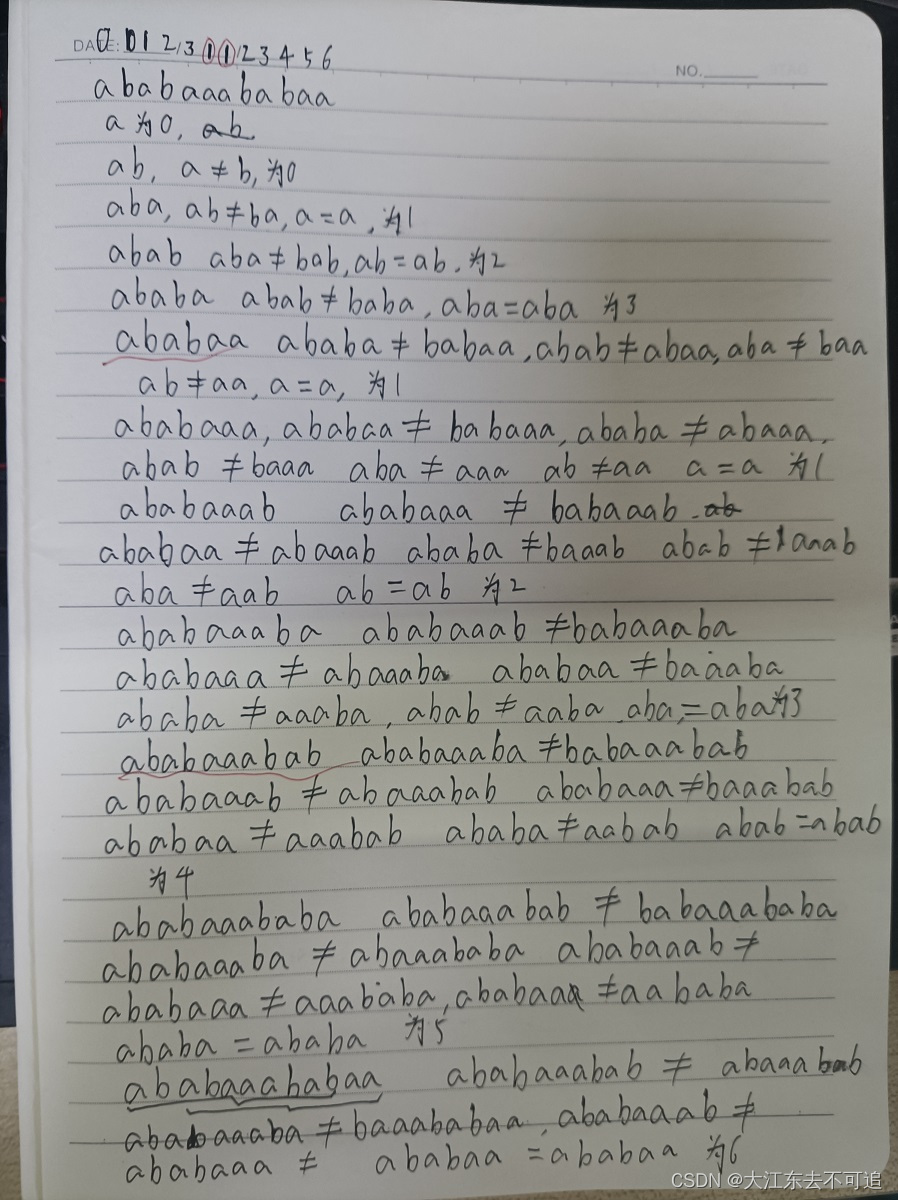 DATE: 0 0 1 2 3 1 1 2 3 4 5 6
NO.
ababaaababaa
a 为0, ab
ab, a≠b, 为0
aba, ab≠ba, a=a, 为1
abab aba≠bab, ab=ab, 为2
ababa abab≠baba, aba=aba 为3
ababaa ababa≠babaa, abab≠abaa, aba≠baa
ab≠aa, a=a, 为1
ababaaa, ababaa≠babaaa, ababa≠abaaa,
abab≠baaa aba≠aaa ab≠aa a=a 为1
ababaaab ababaaa≠babaaab ab
ababaa≠abaaab ababa≠baaab abab≠aaab
aba≠aab ab=ab 为2
ababaaaba ababaaab≠babaaaba
ababaaa≠abaaaba ababaa≠baaaba
ababa≠aaaba, abab≠aaba aba,=aba为3
ababaaabab ababaaaba≠babaaabab
ababaaab≠abaaabab ababaaa≠baaabab
ababaa≠aaabab ababa≠aabab abab=abab
为4
ababaaababa ababaaabab≠babaaababa
ababaaaba≠abaaababa ababaaab≠
ababaaa≠aaababa, ababaaa≠aababa
ababa=ababa 为5
ababaaababaa ababaaabab≠abaaabab
ababaaaba≠baaababaa, ababaaab≠
ababaaa≠ ababaa=ababaa 为6
CSDN @大江东去不可追